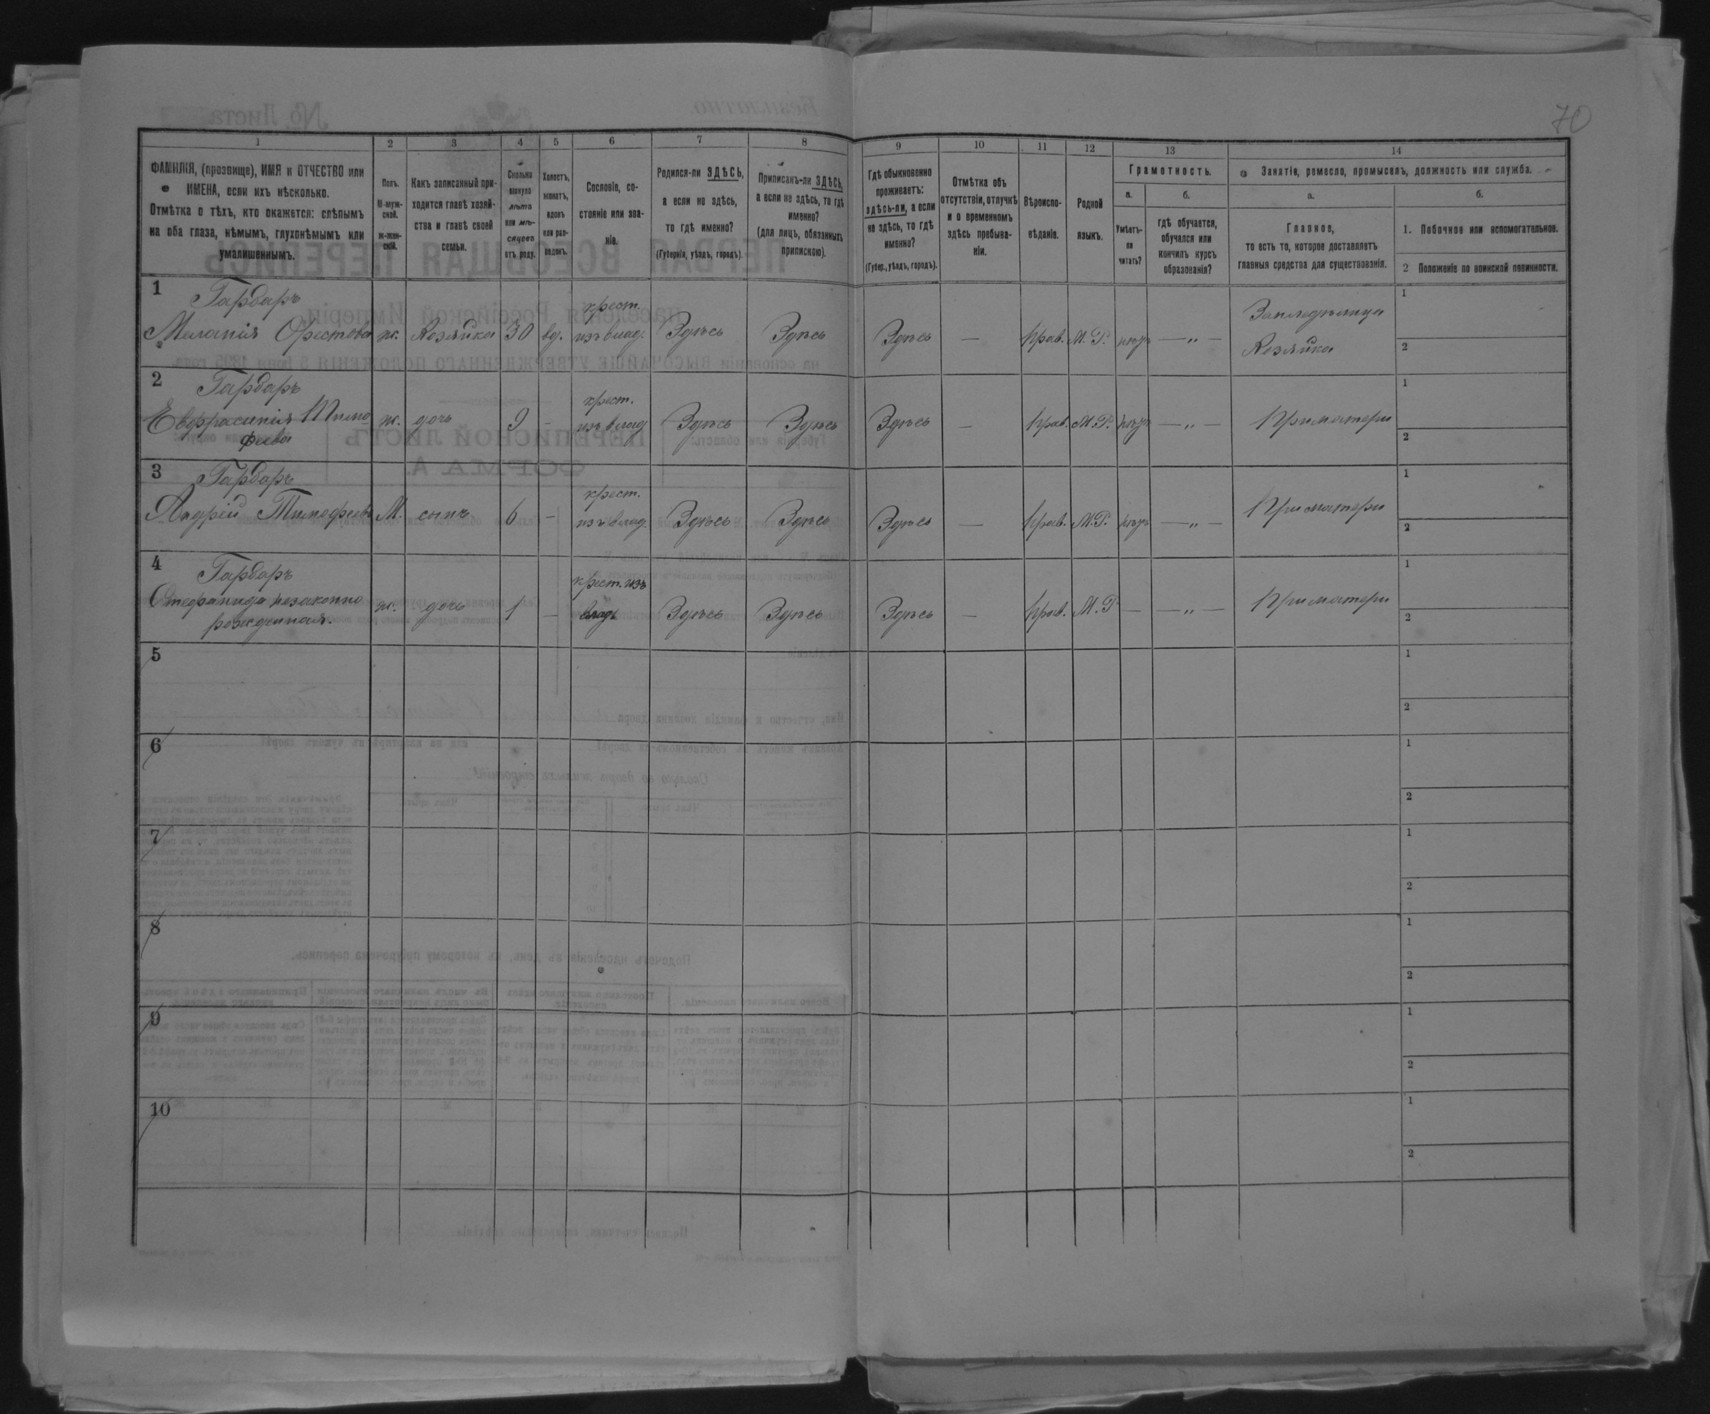 70
1
2
3
4
5
6
7
8
9
10
11
12
13
14
ФАМИЛІЯ, (прозвище), ИМЯ и ОТЧЕСТВО или
ИМЕНА, если ихъ нѣсколько.
Отмѣтка о тѣхъ, кто окажется: слѣпымъ
на оба глаза, нѣмымъ, глухонѣмымъ или
умалишеннымъ.
Полъ.
М-муж-
ской.
ж-жен-
скій.
Какъ записанный при-
ходится главѣ хозяй-
ства и главѣ своей
семьи.
Сколько
минуло
лѣтъ
или мѣ-
сяцевъ
отъ роду.
Холостъ,
женатъ,
вдовъ
или раз-
веденъ.
Сословіе, со-
стояніе или зва-
ніе.
Родился-ли ЗДѢСЬ,
а если не здѣсь,
то гдѣ именно?
(Губернія, уѣздъ, городъ).
Приписанъ-ли ЗДѢСЬ,
а если не здѣсь, то гдѣ
именно?
(для лицъ, обязанныхъ
припискою).
Гдѣ обыкновенно
проживаетъ:
здѣсь-ли, а если
не здѣсь, то гдѣ
именно?
(Губер., уѣздъ, городъ).
Отмѣтка объ
отсутствіи, отлучкѣ
и о временномъ
здѣсь пребыва-
ніи.
Вѣроиспо-
вѣданіе.
Родной
языкъ.
Грамотность.
а.
Умѣетъ-
ли
читать?
б.
гдѣ обучается,
обучался или
кончилъ курсъ
образованія?
Занятіе, ремесло, промыселъ, должность или служба.
а.
Главное,
то есть то, которое доставляетъ
главныя средства для существованія.
б.
1. Побочное или вспомогательное.
2 Положеніе по воинской повинности.
1
Гарбаръ
Меланія
ж. Хозяйка 30 вд.
крест.
изъ влад.
Здѣсь Здѣсь Здѣсь — Прав. М. Р. нѣтъ — „ —
Хозяйка
1
2
2
Гарбаръ
Евфрасинія Тимо
феева
ж. дочь 9 -
крест.
изъ влад
Здѣсь Здѣсь Здѣсь — Прав. М. Р. нѣтъ — „ — При матери
1
2
3
Гарбаръ
Андрій Тимофеевъ М. сынъ 6 -
крест.
изъ влад.
Здѣсь Здѣсь Здѣсь — Прав. М. Р. нѣтъ — „ — При матери
1
2
4
Гарбаръ
Стефанида незаконно
рожденная.
ж. дочь 1 -
крест. изъ
влад
Здѣсь Здѣсь Здѣсь — Прав. М. Р — — „ — При матери
1
2
5
1
2
6
1
2
7
1
2
8
1
2
9
1
2
10
1
2